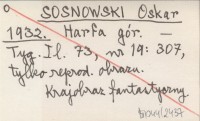 SOSNOWSKI Oskar
1932. Harfa gór. —
Tyg. Il. 73, nr 19: 307,
tylko reprod. obrazu.
Krajobraz fantastyczny